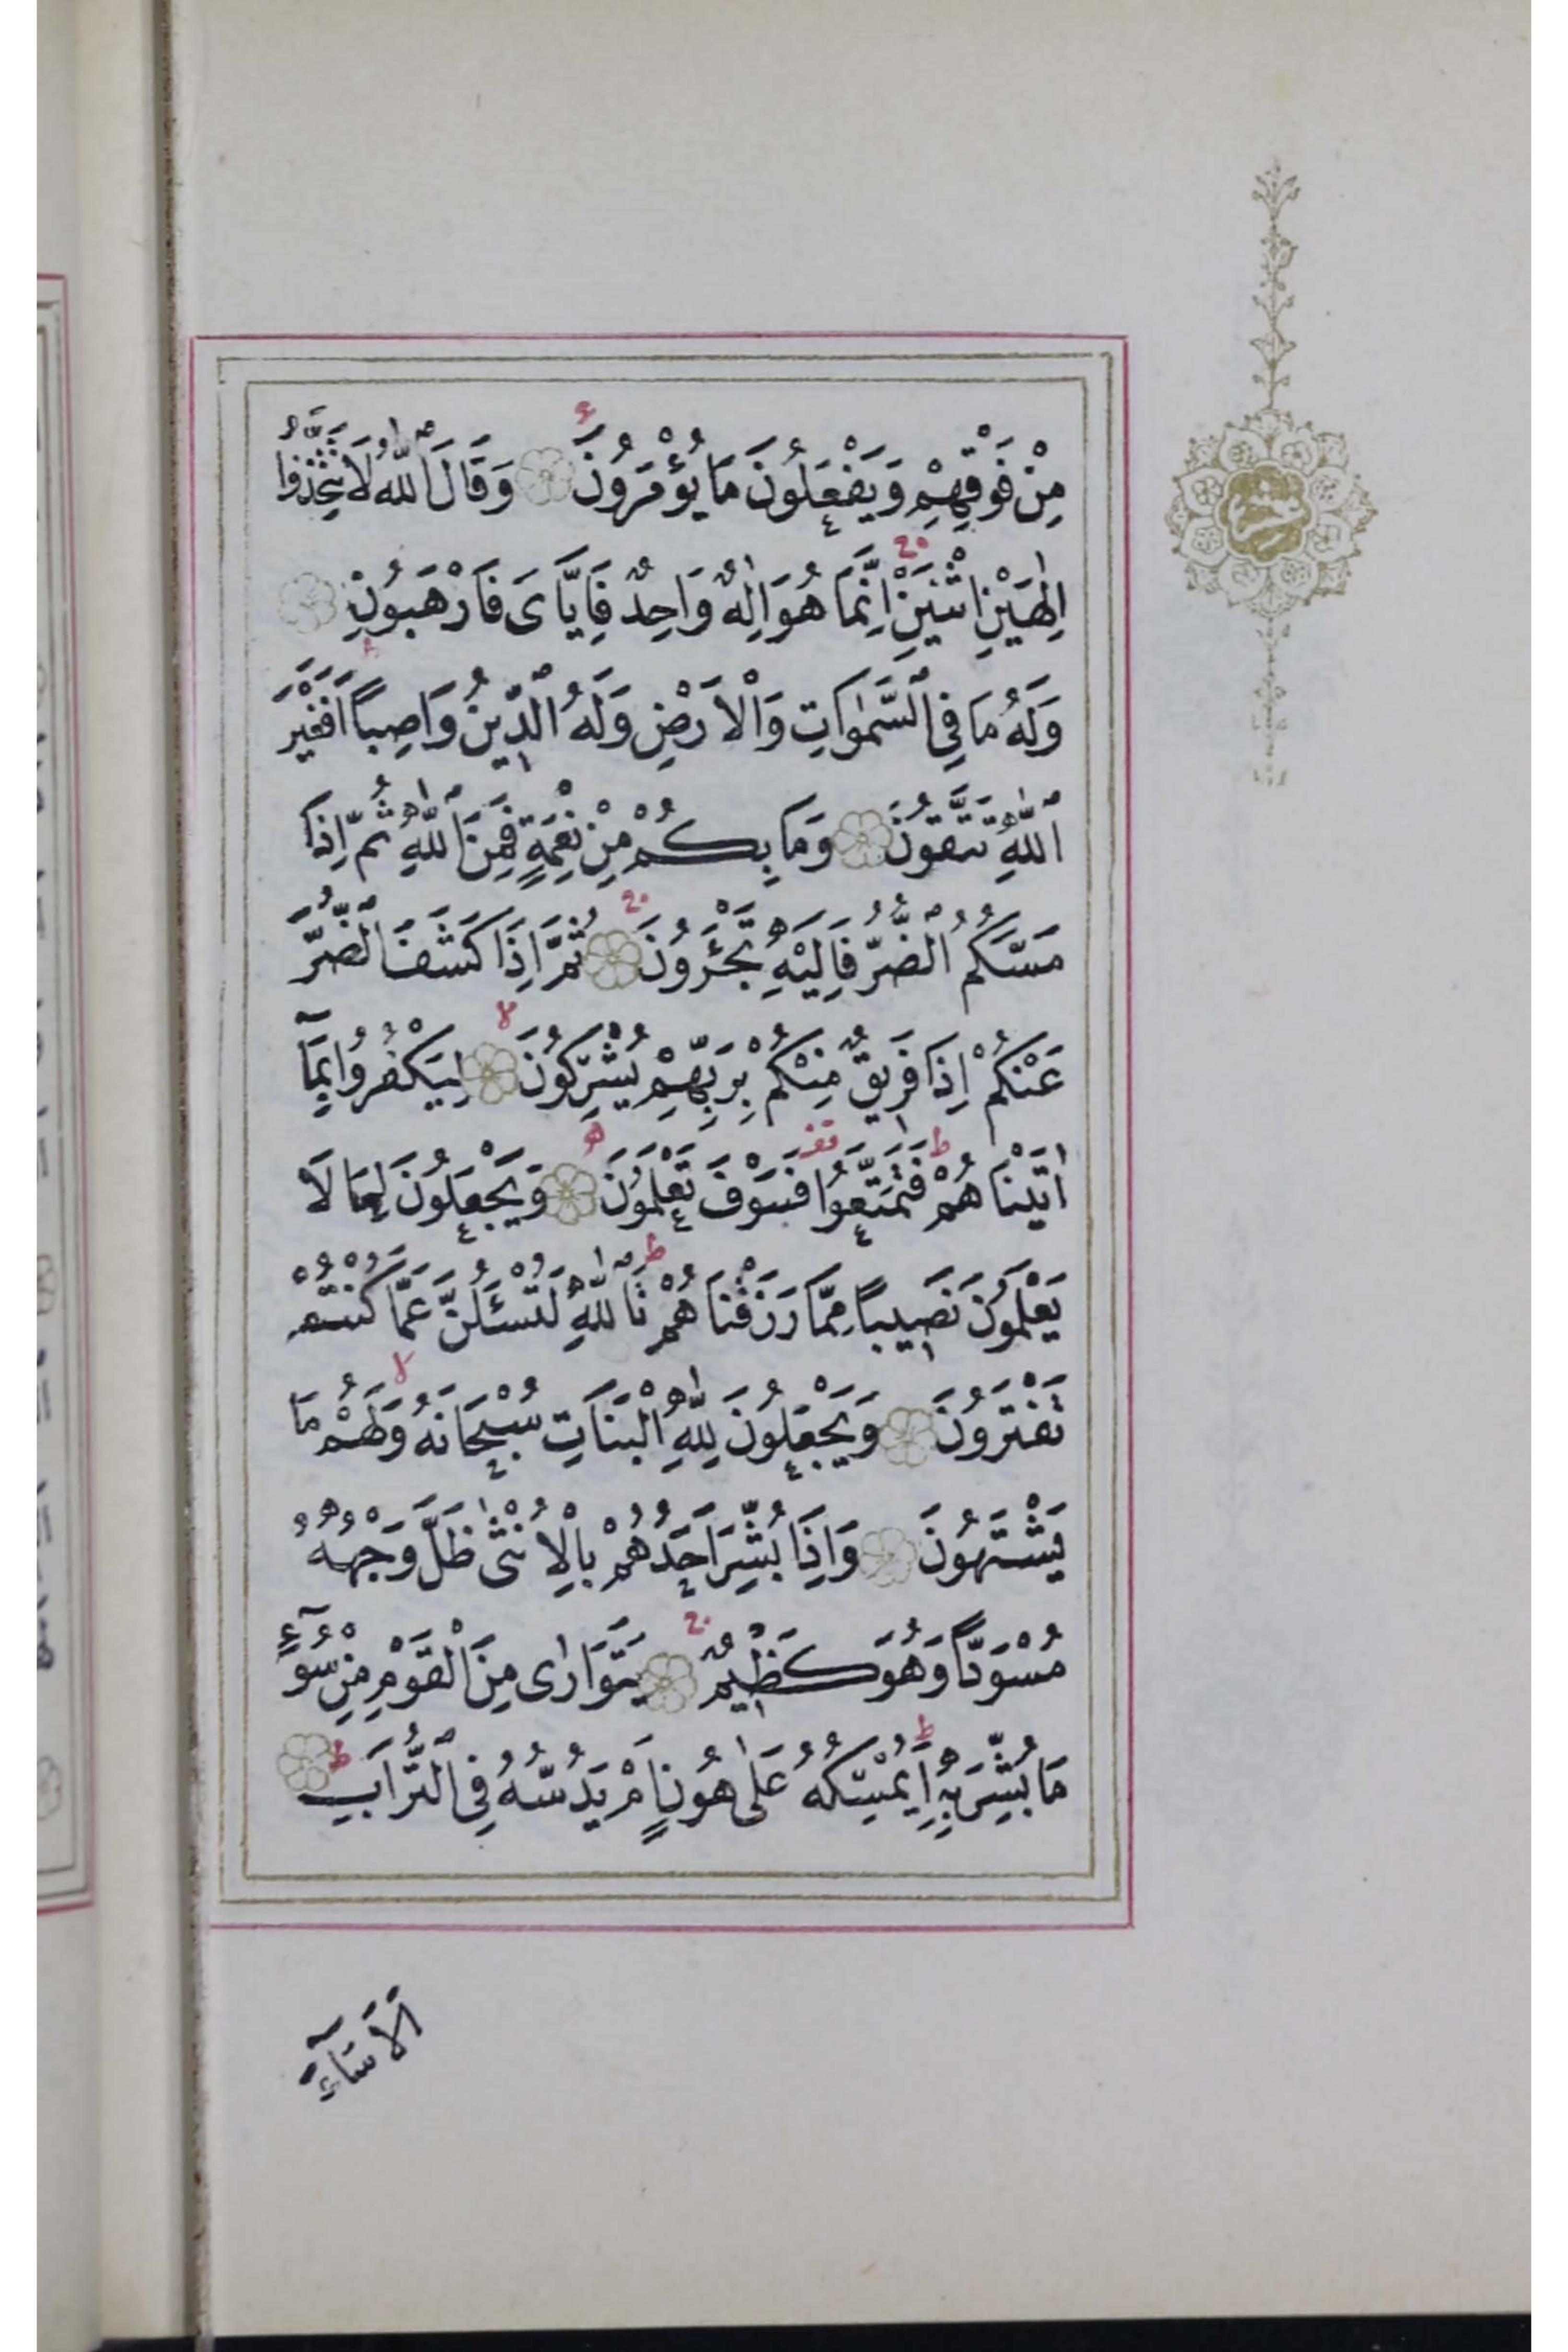 مِنْ فَوْقِهِمْ وَيَفْعَلُونَ مَا يُؤْمَرُونَ وَقَالَ اللّٰهُ لَا تَتَّخِذُوا
اِلٰهَيْنِ اثْنَيْنِ اِنَّمَا هُوَ اِلٰهٌ وَاحِدٌ فَاِيَّاىَ فَارْهَبُونِ
وَلَهُ مَا فِى السَّمٰوَاتِ وَالْاَرْضِ وَلَهُ الدِّينُ وَاصِباً اَفَغَيْرَ
اللّٰهِ تَتَّقُونَ وَمَا بِكُمْ مِنْ نِعْمَةٍ فَمِنَ اللّٰهِ ثُمَّ اِذَا
مَسَّكُمُ الضُّرُّ فَاِلَيْهِ تَجْئَرُونَ ثُمَّ اِذَا كَشَفَ الضُّرَّ
عَنْكُمْ اِذَا فَرِيقٌ مِنْكُمْ بِرَبِّهِمْ يُشْرِكُونَ لِيَكْفُرُوا بِمَٓا
اٰتَيْنَاهُمْ فَتَمَتَّعُوا فَسَوْفَ تَعْلَمُونَ وَيَجْعَلُونَ لِمَا لَا
يَعْلَمُونَ نَصِيباً مِمَّا رَزَقْنَاهُمْ تَاللّٰهِ لَتُسْئَلُنَّ عَمَّا كُنْتُمْ
تَفْتَرُونَ وَيَجْعَلُونَ لِلّٰهِ الْبَنَاتِ سُبْحَانَهُ وَلَهُمْ مَا
يَشْتَهُونَ وَاِذَا بُشِّرَ اَحَدُهُمْ بِالْاُنْثٰى ظَلَّ وَجْهُهُ
مُسْوَدّاً وَهُوَ كَظِيمٌ يَتَوَارٰى مِنَ الْقَوْمِ مِنْ سُٓوءِ
مَا بُشِّرَ بِهِ اَيُمْسِكُهُ عَلٰى هُونٍ اَمْ يَدُسُّهُ فِى التُّرَابِ
اَلَا سَٓاءَ